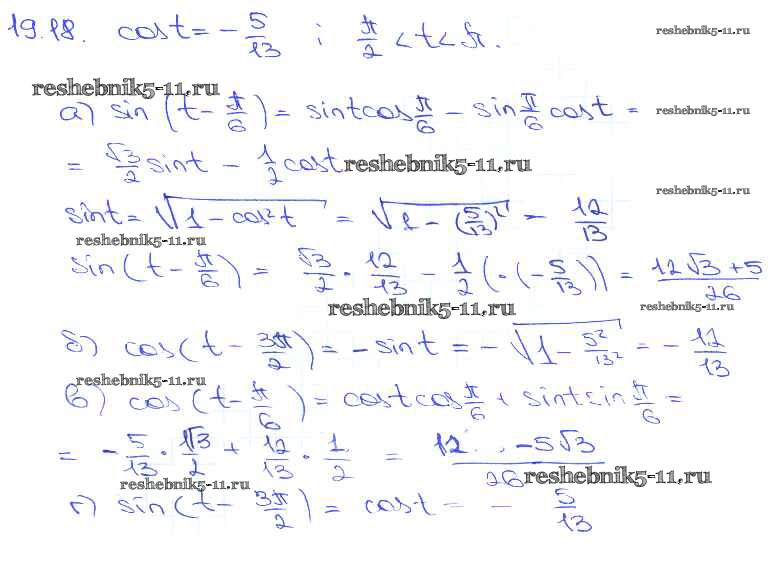 19.18. cost = - 5/13 ; π/2 < t < π.
reshebnik5-11.ru
reshebnik5-11.ru
а) sin(t - π/6) = sintcosπ/6 - sinπ/6cost =
reshebnik5-11.ru
= √3/2 sint - 1/2 cost
reshebnik5-11.ru
reshebnik5-11.ru
sint = √(1 - cos²t) = √(1 - (5/13)²) = 12/13
reshebnik5-11.ru
sin(t - π/6) = √3/2 · 12/13 - 1/2(·(-5/13)) = 12√3+5/26
reshebnik5-11.ru
reshebnik5-11.ru
б) cos(t - 3π/2) = -sint = -√(1 - 5²/13²) = - 12/13
reshebnik5-11.ru
в) cos(t - π/6) = costcosπ/6 + sintsinπ/6 =
= - 5/13 · √3/2 + 12/13 · 1/2 = 12 -5√3/26
reshebnik5-11.ru
reshebnik5-11.ru
г) sin(t - 3π/2) = cost = - 5/13